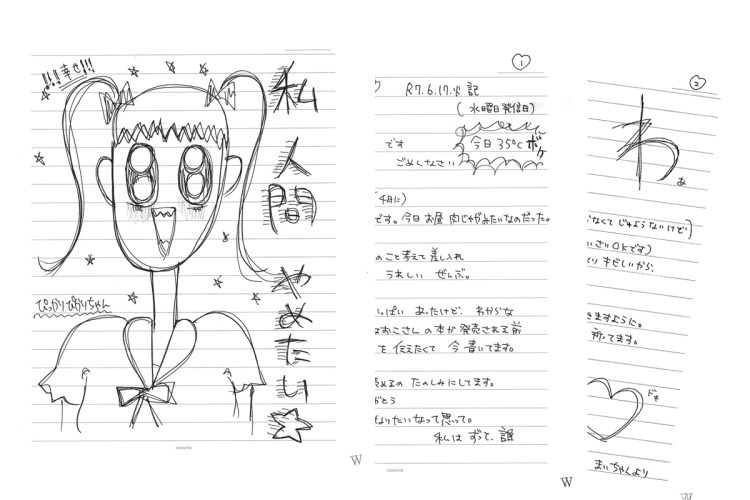 !!!幸せ!!!
私
人間
やめたい
ぴっかりぴかりちゃん
KOKUYO
W
1
R7.6.17.火 記
(水曜日発信日)
です
今日35℃
ごめんなさい
4月に)
です。今日 お昼 肉じゃがみたいなのだった。
のこと考えて 差し入れ
うれしい ぜんぶ。
っぱい あったけど、わからな
おこさんの本が 発売される前
を 伝えたくて 今 書いてます。
めるの たのしみにしてます。
がとう
なりたいなって 思って。
私は ずって、誰
KOKUYO
W
2
わ
なくて じゅうようないけど)
いさい OKです)
さびしいから、
きますように。
祈ってます。
ドキ
まいちゃんより
W